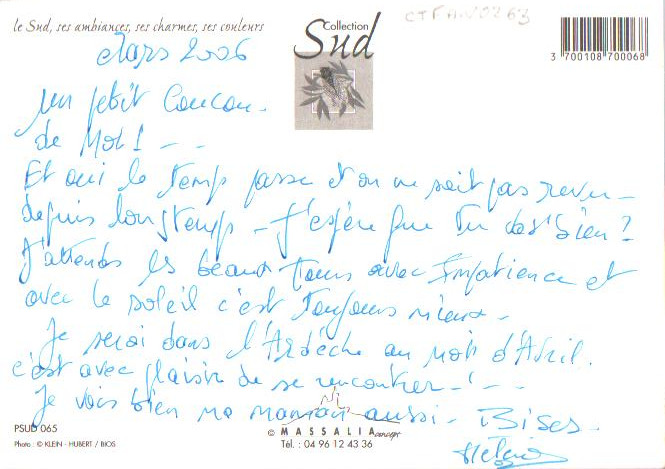 le Sud, ses ambiances, ses charmes, ses couleurs
Collection
Sud
CTFAN00263
3 700108 700068
Mars 2006
Un petit Coucou.
de Moi ! - -
Et oui le temps passe et on ne sait pas revu -
depuis longtemp - J'espère que Tu vas bien ?
J'attends les beaux Jours avec Impatience et
avec le soleil c'est Toujours mieux -
Je serai dans l'Ardèche au mois d'Avril.
c'est avec plaisir de se rencontrer - ! - -
Je vois bien ma maman aussi - Bises -
PSUD 065
Photo : © KLEIN - HUBERT / BIOS
© MASSALIA concept
Tél. : 04 96 12 43 36